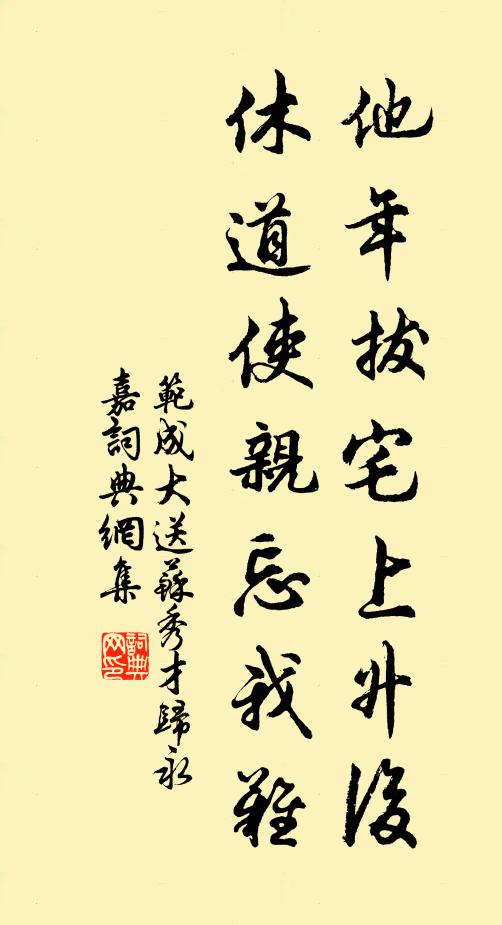 他年拔宅上升後
休道使親忘我難
範成大送蘇秀才歸永
嘉詞典網集
詞典網印